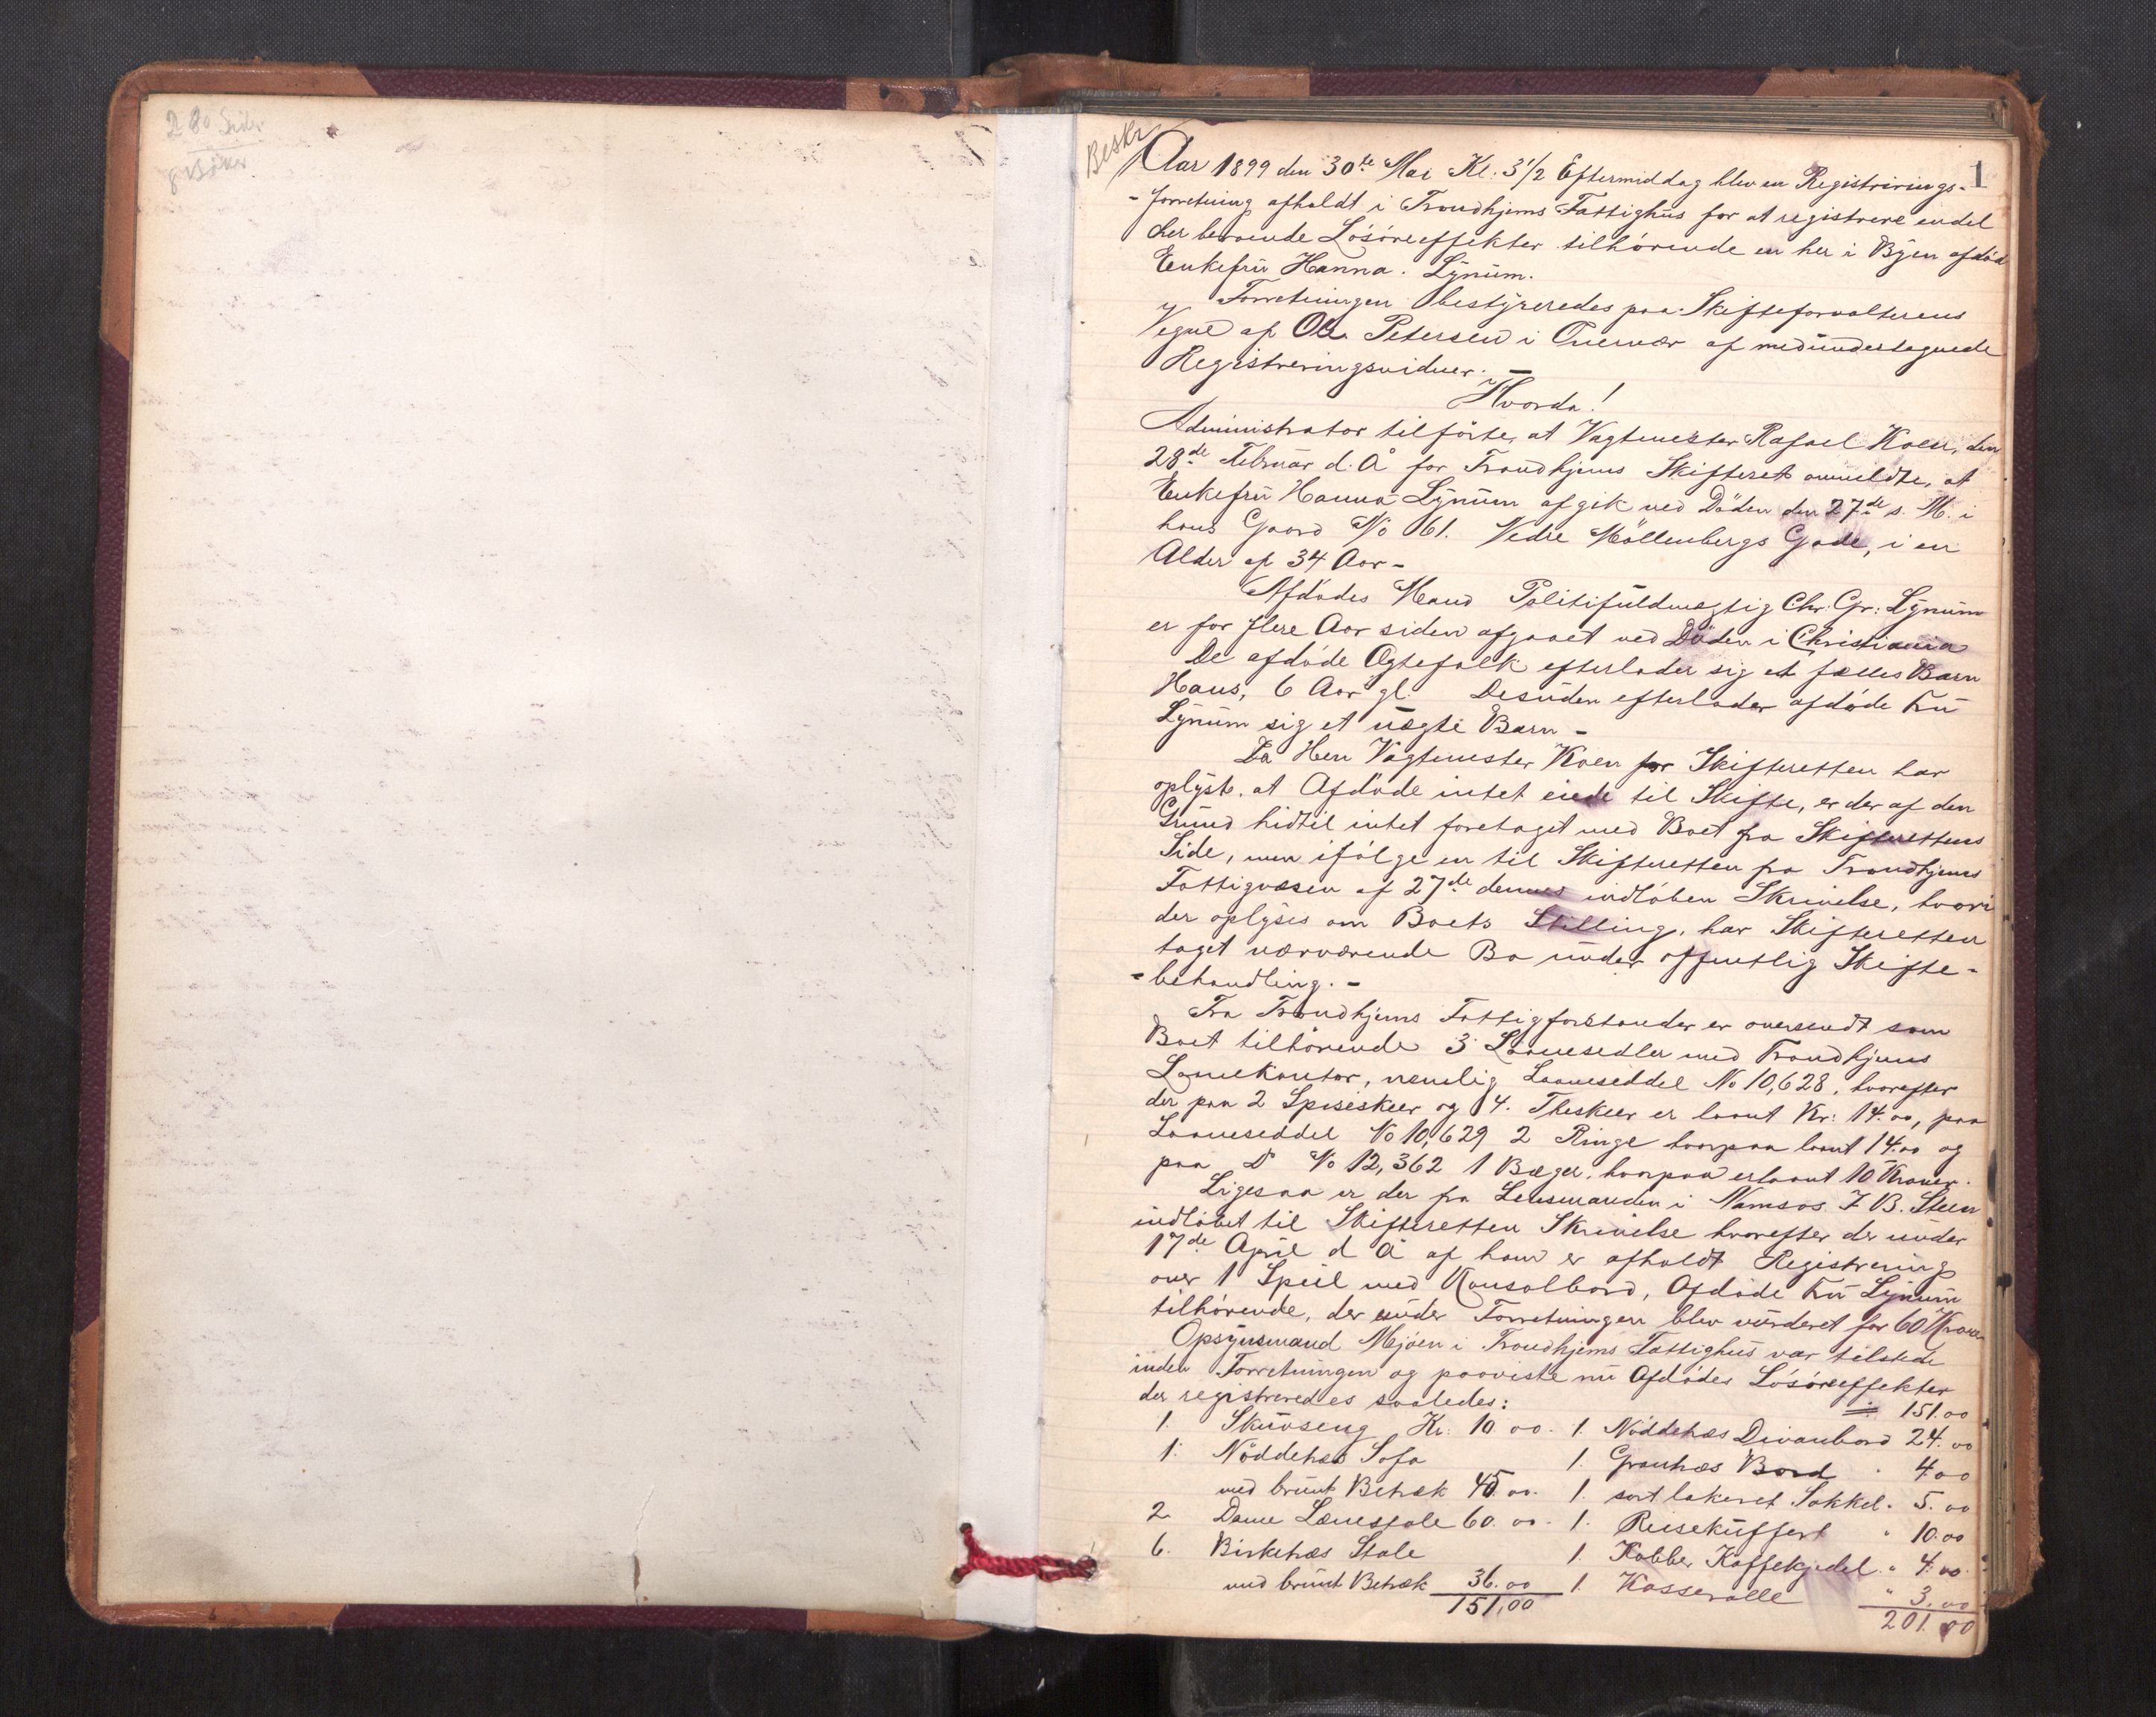 280 Sider
8 Bøker
Beskr
1
Aar 1899 den 30te Mai Kl. 3 1/2 Eftermiddag blev en Registrerings-
-forretning afholdt i Trondhjems Fattighus for at registrere endel
her beroende Løsøreeffekter tilhørende en her i Byen afdød
Enkefru Hanna Lynum.
Forretningen bestyreredes paa Skifteforvalterens
Vegne af Ole Petersen i Overvær af medundertegnede
Registreringsvidner. -
Hvorda!
Administrator tilførte, at Vagtmester Rafael Koen, den
28de Februar d. A for Trondhjems Skifteret anmeldte, at
Enkefru Hanna Lynum afgik ved Døden den 27de s. M. i
hans Gaard No 61. Nedre Møllenbergs Gade, i en
Alder af 34 Aar -
Afdødes Mand Politifuldmægtig Chr. Gr: Lynum
er for flere Aar siden afgaaet ved Døden i Christiania
De afdøde Ægtefolk efterlader sig et fælles Barn
Hans, 6 Aar gl. Desuden efterlader afdøde Fru
Lynum sig et uægte Barn -
Da Herr Vagtmester Koen for Skifteretten har
oplyst, at Afdøde intet eiede til Skifte, er der af den
Grund hidtil intet foretaget med Boet fra Skifterettens
Side, men ifølge en til Skifteretten fra Trondhjems
Fattigvæsen af 27de dennes indløben Skrivelse, hvori
der oplyses om Boets Stilling, har Skifteretten
taget nærværende Bo under offentlig Skifte-
-behandling. -
Fra Trondhjems Fattigforstander er oversendt som
Boet tilhørende 3 Laanesedler med Trondhjems
Lanekontor, nemlig Laaneseddel No 10,628, hvorefter
der paa 2 Spiseskeer og 14. Theskeer er laant Kr: 14.00, paa
Laaneseddel No 10,629 2 Ringe hvorpaa laant 14.00 og
paa Do No 12,362 1 Bæger, hvorpaa er laant 10 Kroner.
Ligesaa er der fra Lensmanden i Namsos J. B. Steen
indløbet til Skifteretten Skrivelse hvorefter der under
17de April d A af ham er afholdt Registrering
over 1 Speil med Konsolbord, Afdøde Fru Lynum
tilhørende, der under Forretningen blev vurderet for 60 Kroner
Opsynsmand Mjøen i Trondhjems Fattighus var tilstede
under Forretningen og paaviste nu Afdødes Løsøreeffekter
der registreredes saaledes:
151.00
1. Skuvseng Kr: 10.00. 1. Nøddetræs Divanbord 24.00
1. Nøddetræs Sofa 1. Grantræs Bord " 4.00
med brunt Betræk 45.00. 1. sort lakeret Sokkel " 5.00
2 Dame Lænestole 60.00. 1. Reisekuffert " 10.00
6. Birketræs Stole 1. Kobber Kaffekjedel " 4.00
med brunt Betræk 36.00 1. Kasserolle " 3.00
151.00
201.00